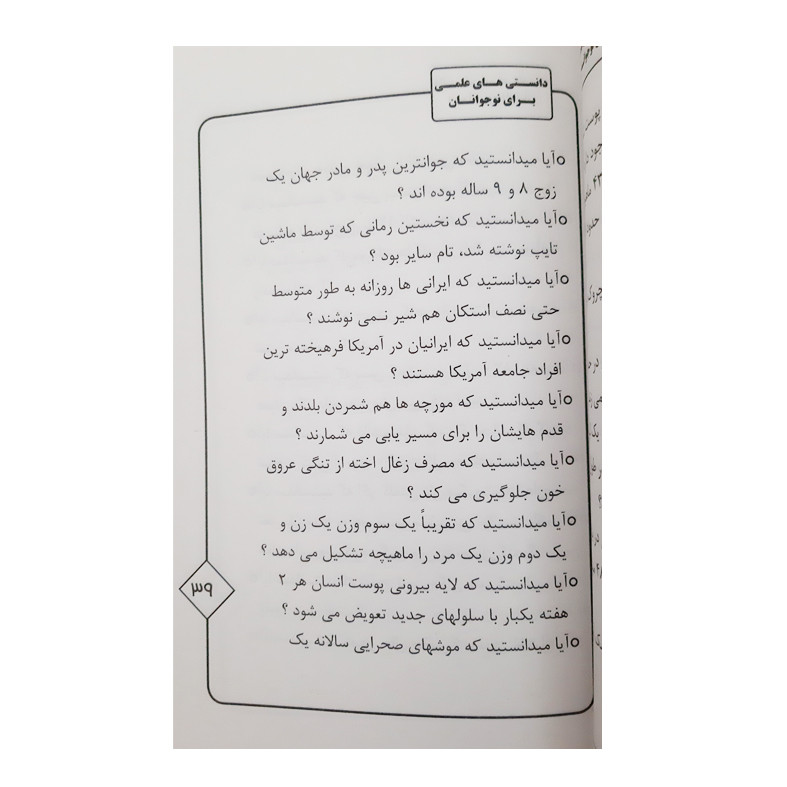 دانستی های علمی
برای نوجوانان
آیا میدانستید که جوانترین پدر و مادر جهان یک
زوج ۸ و ۹ ساله بوده اند ؟
آیا میدانستید که نخستین رمانی که توسط ماشین
تایپ نوشته شد، تام سایر بود ؟
آیا میدانستید که ایرانی ها روزانه به طور متوسط
حتی نصف استکان هم شیر نـمی نوشند ؟
آیا میدانستید که ایرانیان در آمریکا فرهیخته ترین
افراد جامعه آمریکا هستند ؟
آیا میدانستید که مورچه ها هم شمردن بلدند و
قدم هایشان را برای مسیر یابی می شمارند ؟
آیا میدانستید که مصرف زغال اخته از تنگی عروق
خون جلوگیری می کند ؟
آیا میدانستید که تقریباً یک سوم وزن یک زن و
یک دوم وزن یک مرد را ماهیچه تشکیل می دهد ؟
آیا میدانستید که لایه بیرونی پوست انسان هر ۲
هفته یکبار با سلولهای جدید تعویض می شود ؟
آیا میدانستید که موشهای صحرایی سالانه یک
۳۹
پوست
چروک